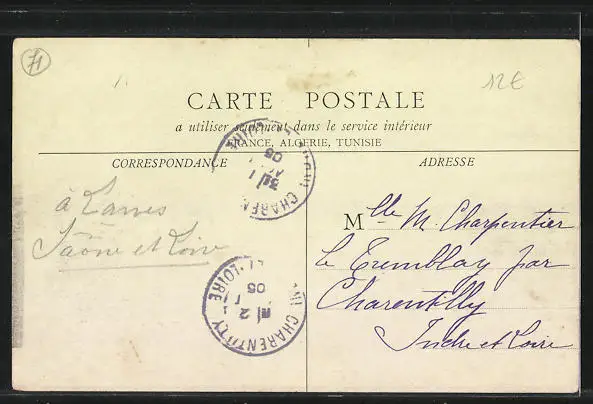 71
12€
CARTE POSTALE
a utiliser seulement dans le service intérieur
FRANCE, ALGERIE, TUNISIE
CORRESPONDANCE
ADRESSE
à
Saône et Loire
Mlle M. Charpentier
le Tremblay par
Charentilly
Indre et Loire
CHAREN
05
CHARENTILLY
LOIRE
2
05